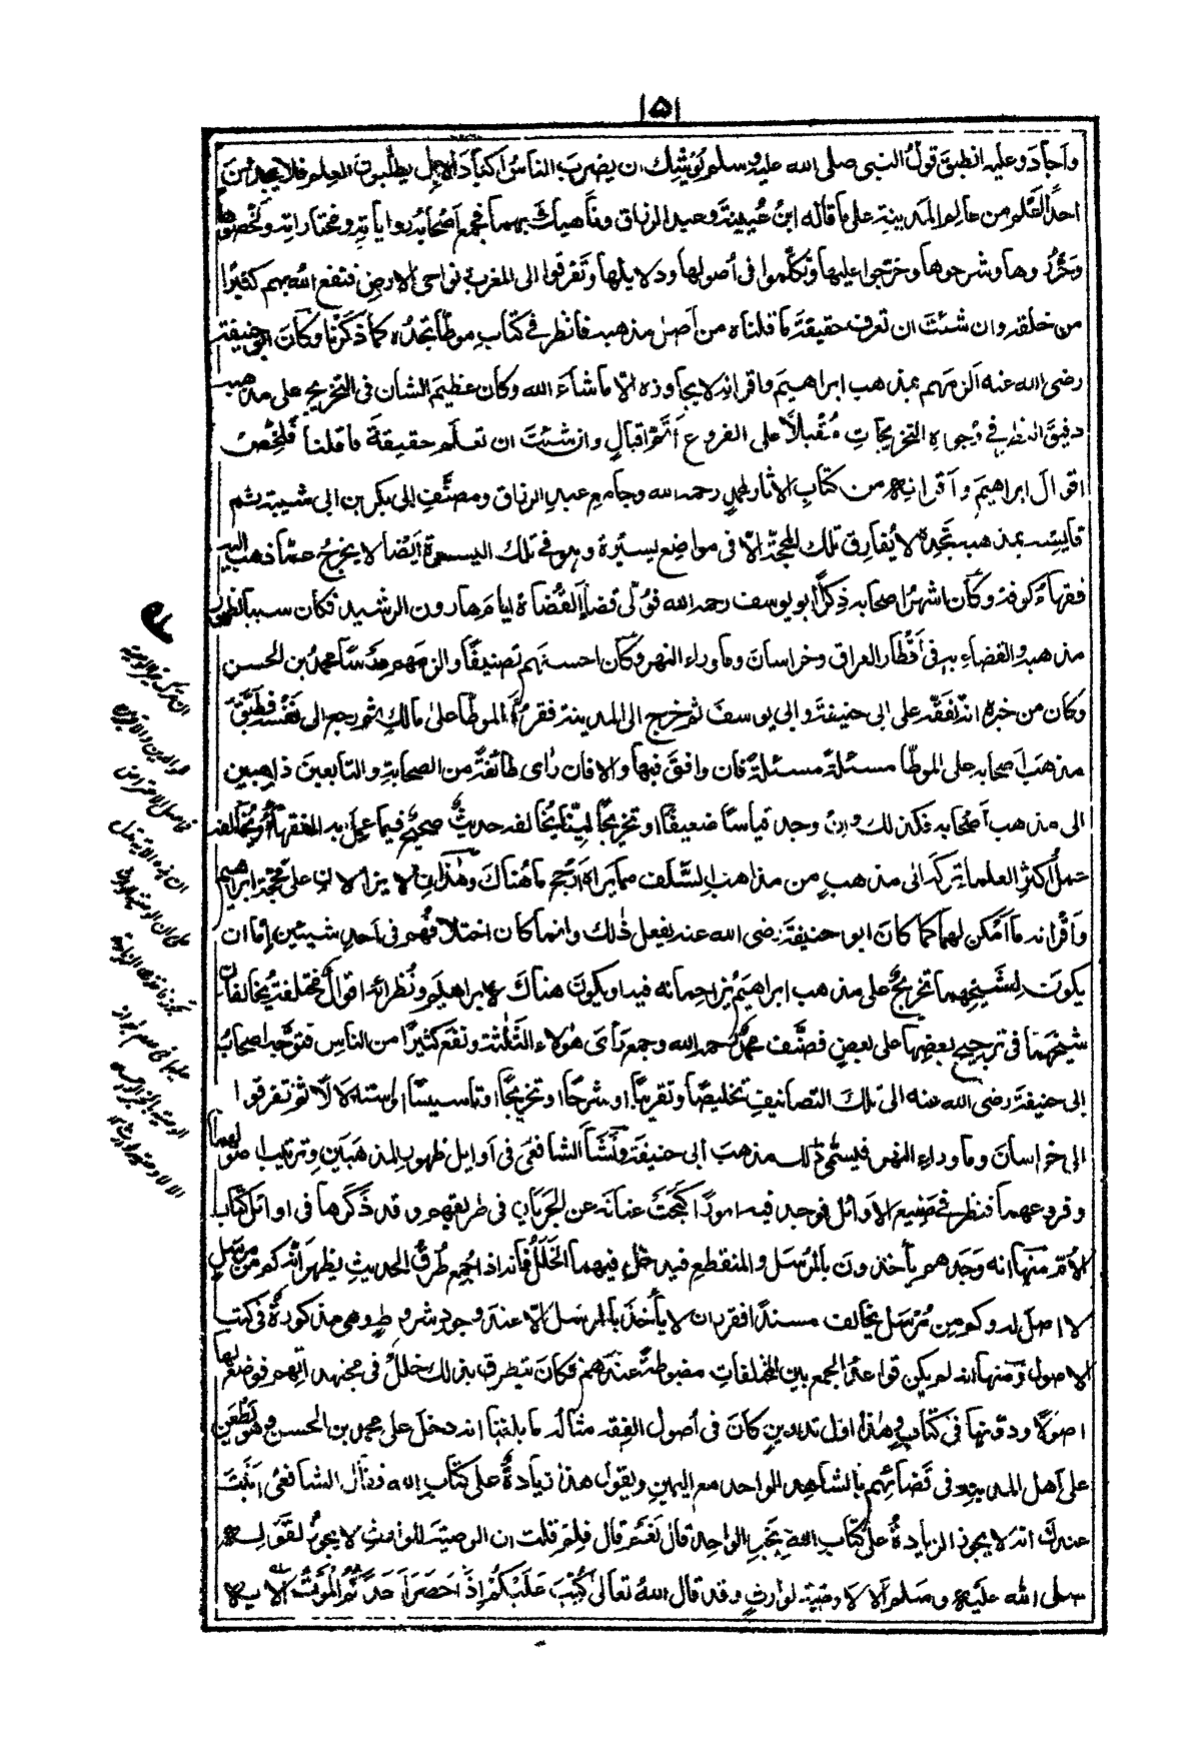 ١٥١
واجاد وعليه انطبق قول النبى صلى الله عليه وسلم يوشك ان يضرب الناس اكباد الابل يطلبون العلم فلا يجدون
احدًا اعلم من عالم المدينة على ما قاله ابنُ عُيينة وعبد الرزاق وناهيك بهما فجمع اصحابه رواياته ومختاراته ولخصوها
وحرّروها وشرحوها وخرّجوا عليها وتكلّموا فى أصولها ودلايلها وتفرقوا الى المغرب ونواحى الارض فنفع الله بهم كثيرًا
من خلقه وان شئت ان تعرف حقيقة ما قلناه من اصل مذهبه فانظر فى كتاب موطأ تجده كما ذكرنا وكان ابو حنيفة
رضى الله عنه الزمهم بمذهب ابراهيم واقرانه لا يجاوزه الا ما شاء الله وكان عظيم الشان فى التخريج على مذهبه
دقيق النظر فى وجوه التخريجات مُقبلًا على الفروع أتم اقبال وان شئت ان تعلم حقيقة ما قلنا فلخص
اقوال ابراهيم واقرانه من كتاب الاثار لمحمد رحمه الله وجامع عبد الرزاق ومصنف ابى بكر بن ابى شيبة ثم
قايسه بمذهبه تجده لا يُفارق تلك المحجّة الّا فى مواضع يسيرة وهو فى تلك اليسيرة أيضًا لا يخرج عما ذهب اليه
فقهاء كوفة وكان اشهر اصحابه ذكرًا أبو يوسف رحمه الله فولى قضاء القضاة ايام هارون الرشيد فكان سببا لظهور
مذهبه والقضاء به فى أقطار العراق وخراسان وما وراء النهر وكان احسنهم تصنيفًا والزمهم درسًا محمد بن الحسن
وكان من خبره انه تفقه على ابى حنيفة وابى يوسف ثم خرج الى المدينة فقرأ الموطأ على مالك ثم رجع الى نفسه فطبّق
مذهب اصحابه على الموطّا مسئلة مسئلة فان وافق فبها والا فان راى طائفة من الصحابة والتابعين ذاهبين
الى مذهب أصحابه فكذلك وان وجد قياسًا ضعيفًا او تخريجًا ليّنًا يُخالفه حديث صحيح فيما عمل به الفقهاء ويخالفه
عمل أكثر العلماء تركه الى مذهب من مذاهب السلف مما يراه أرجح ما هناك وهذان لا يزالان على محجة ابراهيم
وأقرانه ما أمكن لهما كما كان ابو حنيفة رضى الله عنه يفعل ذلك وانما كان اختلافهم فى أحد شيئين إما ان
يكون لشيخهما تخريج على مذهب ابراهيم يزاحمانه فيه او يكون هناك لابراهيم ونُظرائه اقوال مختلفة يخالفان
شيخهما فى ترجيح بعضها على بعض فصنّف محمد رحمه الله وجمع رأى هؤلاء الثلثة ونفع كثيرًا من الناس فتوجه اصحاب
ابى حنيفة رضى الله عنه الى تلك التصانيف تلخيصًا وتقريبًا او شرحًا او تخريجًا او تاسيسًا او استدلالًا ثم تفرقوا
الى خراسان وما وراء النهر فيسمى ذلك مذهب أبى حنيفة ونشأ الشافعى فى أوايل ظهور المذهبين وترتيب اصولهما
وفروعهما فنظر فى صنيع الاوائل فوجد فيه امورًا كبحت عنانه عن الجريان فى طريقهم وقد ذكرها فى اوائل كتاب
الأم منها انه وجدهم يأخذون بالمرسل والمنقطع فيدخل فيهما الخلل فانه اذا جُمع طُرق الحديث يظهر انه كم من مرسل
لا اصل له وكم من مُرسل يخالف مسندًا فقرر ان لا يأخذ بالمرسل الّا عند وجود شروط وهى مذكورة فى كتب
الاصول ومنها انه لم يكن قواعد الجمع بين المختلفات مضبوطة عندهم فكان يتطرق بذلك خلل فى مجتهداتهم فوضع لها
اصولًا ودوّنها فى كتاب وهذا اول تدوين كان فى أصول الفقه مثاله ما بلغنا انه دخل على محمد بن الحسن وهو يطعن
على أهل المدينة فى قضائهم بالشاهد الواحد مع اليمين ويقول هذا زيادة على كتاب الله فقال الشافعى أثبت
عندك انه لا يجوز الزيادة على كتاب الله بخبر الواحد قال نعم قال فلم قلت ان الوصية للوارث لا يجوز لقوله
صلى الله عليه وسلم ألا لا وصية لوارث وقد قال الله تعالى كُتِبَ عَلَيْكُمْ إِذَا حَضَرَ أَحَدَكُمُ الْمَوْتُ الاية